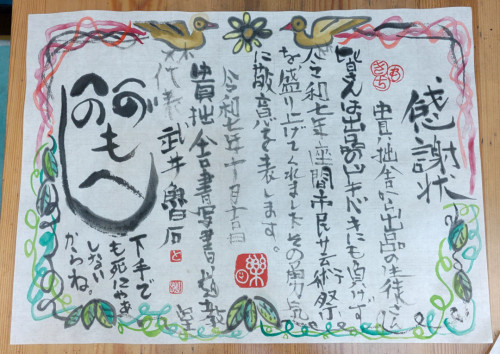 感謝状
貴拙舎から出品の生徒さん
皆さんは出品のドキドキにも負けず
令和七年座間市民芸術祭
を盛り上げてくれましたその勇気
に敬意を表します。
令和七年十月吉日
貴拙舎書写書道教室
代表 武井魯石
へのへのもへじ
下手で
も死にやあ
しない
からね。